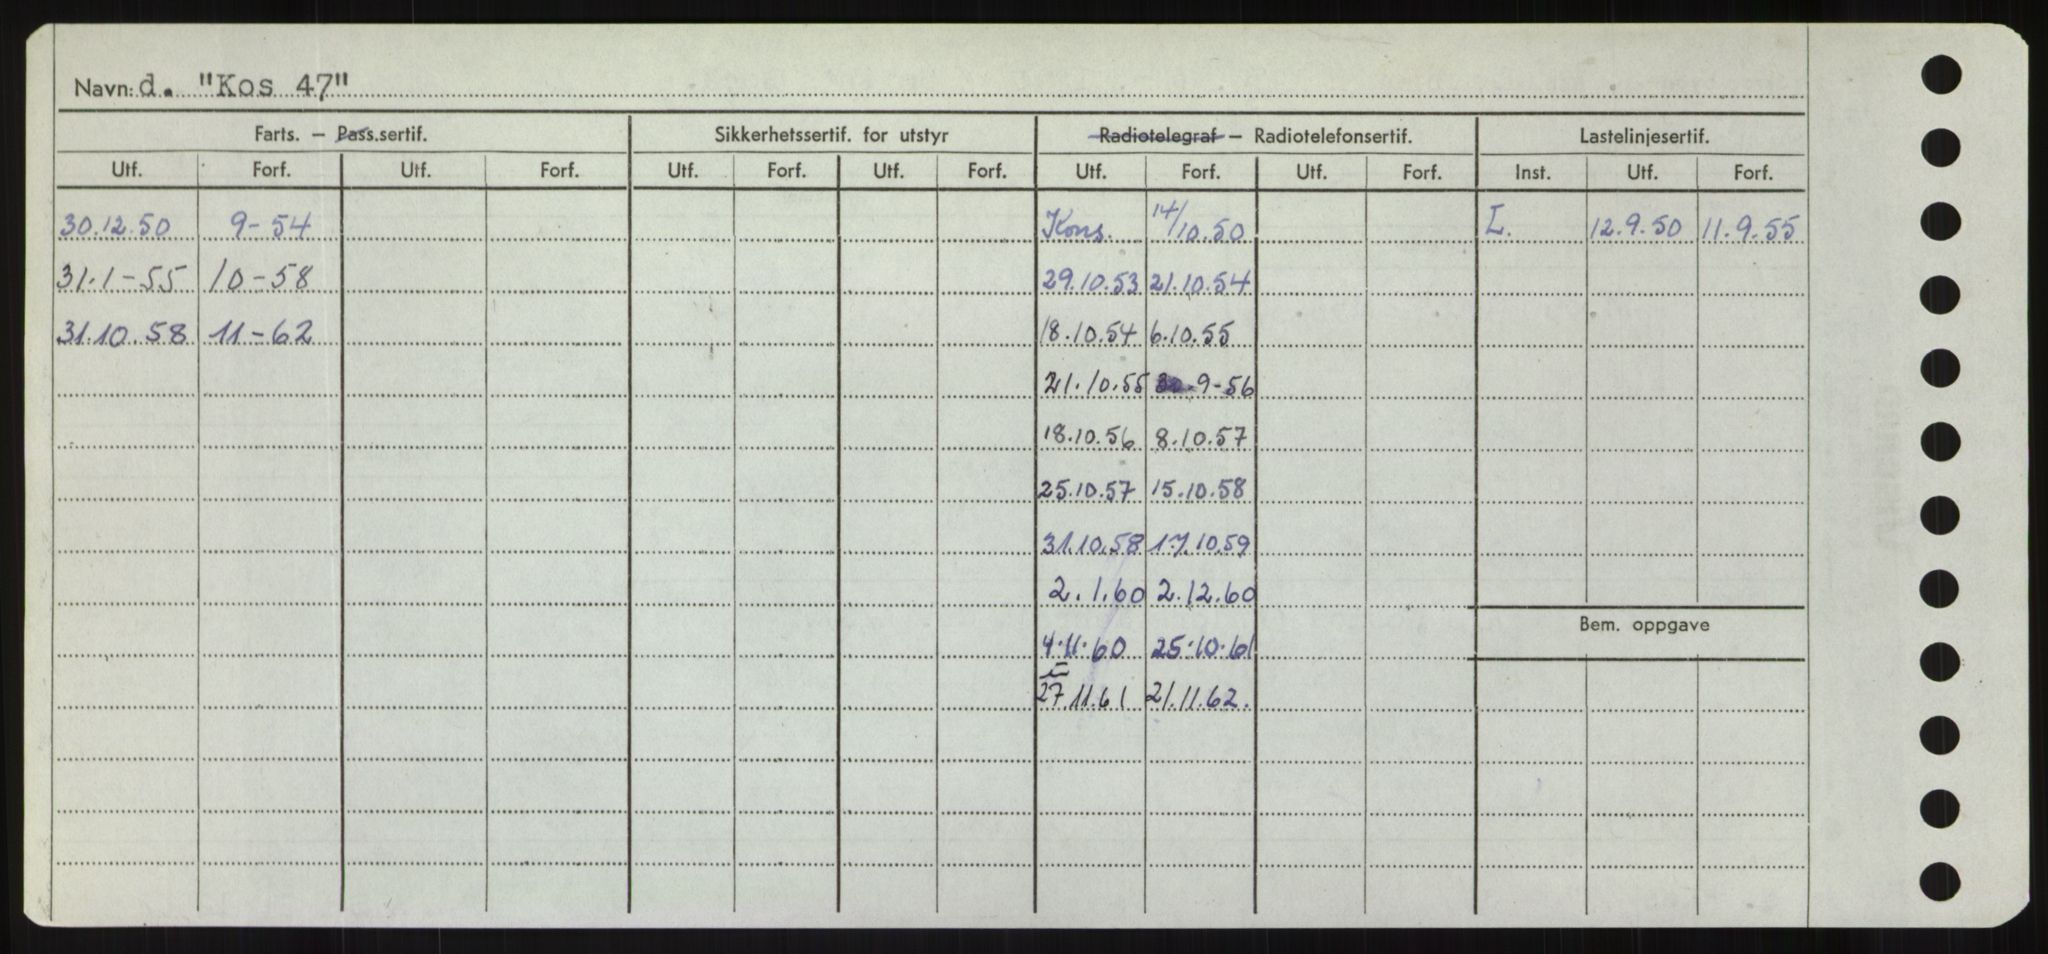 Navn: d. "Kos 47"
Farts. – Pass.sertif. Sikkerhetssertif. for utstyr Radiotelegraf – Radiotelefonsertif. Lastelinjesertif.
Utf. Forf. Utf. Forf. Utf. Forf. Utf. Forf. Utf. Forf. Utf. Forf. Inst. Utf. Forf.
30.12.50 9-54 Kons. 14/10.50 L. 12.9.50 11.9.55
31.1-55 10-58 29.10.53 21.10.54
31.10.58 11-62 18.10.54 6.10.55
21.10.55 30.9-56
18.10.56 8.10.57
25.10.57 15.10.58
31.10.58 17.10.59
2.1.60 2.12.60
Bem. oppgave
4.11.60 25.10.61
27.11.61 21.11.62.